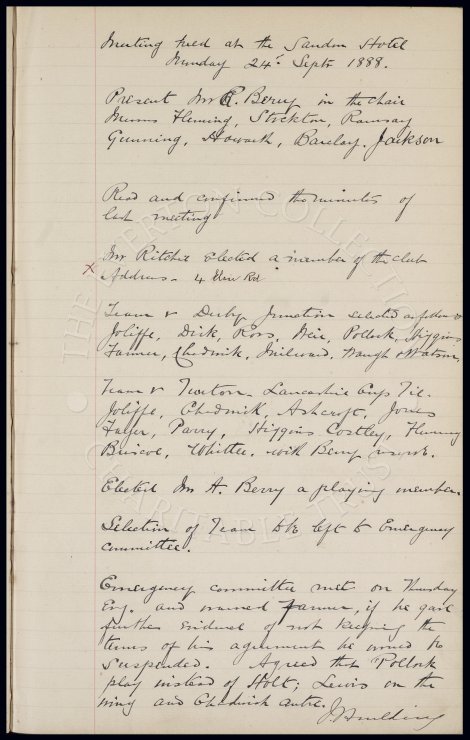 Meeting held at the Sandon Hotel
Monday 24th Septr 1888.
Present Mr R. Berry in the chair
Messrs Fleming, Stockton, Ramsay
Gunning, Howarth, Barclay, Jackson
Read and confirmed the minutes of
last meeting
x Mr Ritchie elected a member of the club
Address - 4 Rd
Team v Derby Junction selected as follows
Joliffe, Dick, Ross, Weir, Pollock, Higgins
Farmer, Chadwick, Milward, Waugh & Watson,
Team v Newton - Lancashire Cup Tie.
Joliffe, Chadwick, Ashcroft, Jones
Parry, Higgins Costley, Fleming
Briscoe, Whittle. with Berry reserve.
Elected Mr A. Berry a playing member
Selection of Team to be left to Emergency
committee.
Emergency committee met on Thursday
Evg. and warned Farmer, if he gave
further evidence of not keeping the
terms of his agreement he would be
suspended. Agreed that Pollock
play instead of Holt; Lewis on the
wing and Chadwick centre.
THE EVERTON COLLECTION
CHARITABLE TRUST